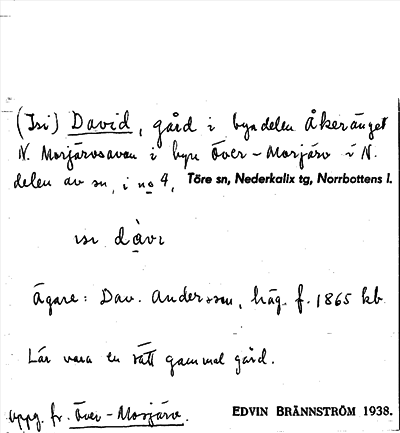 (Isi) David, gård i byndelen Åkeränget
N. Morjärvsavan i byn Över-Morjärv i N.
delen av sn, i no 4, Töre sn, Nederkalix tg, Norrbottens l.
isi dàvi
Ägare: Dav. Andersson, häg. f. 1865 kb
Lär vara en rätt gammal gård.
uppg. fr. Över-Morjärv. EDVIN BRÄNNSTRÖM 1938.